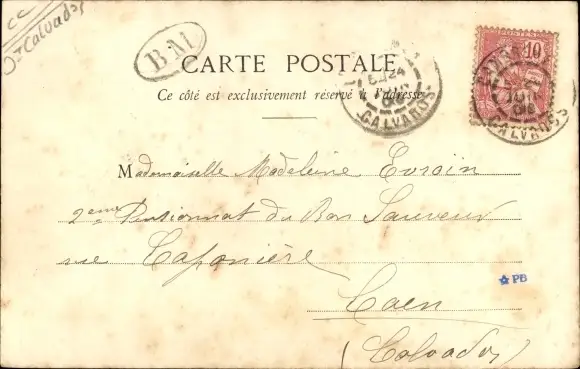 CC
Calvados
B.M
CARTE POSTALE
Ce côté est exclusivement réservé à l'adresse
10
CALVADOS
CALVADOS
Mademoiselle Madeleine Evrain
2eme Pensionnat du Bon Sauveur
rue Caponière
PB
Caen
(Calvados)